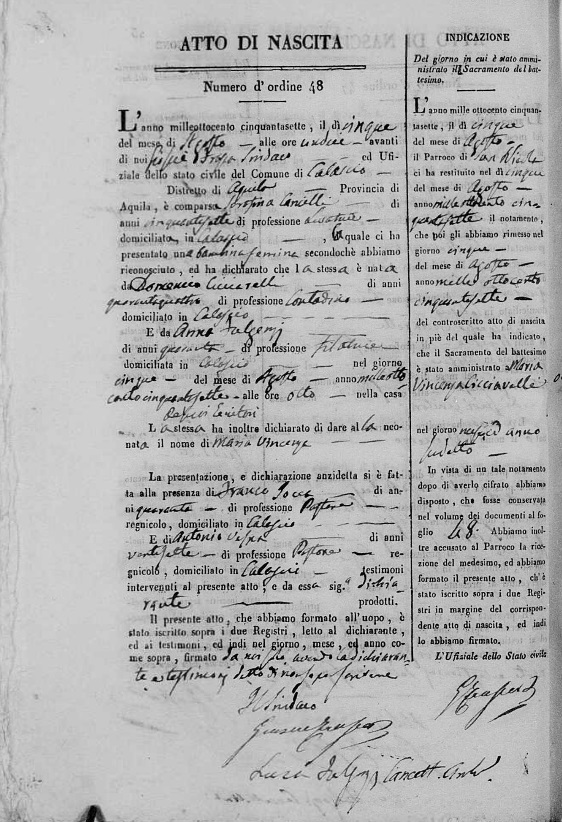 ATTO DI NASCITA
Numero d'ordine 48
L'anno milleottocento cinquantasette, il dì cinque
del mese di Agosto alle ore undici avanti
di noi Sindaco ed Ufi-
ziale dello stato civile del Comune di Calascio
Distretto di Aquila Provincia di
Aquila, è comparsa di
anni cinquantasette di professione
domiciliata in Calascio, la quale ci ha
presentato una bambina femina secondochè abbiamo
riconosciuto, ed ha dichiarato che la stessa è nata
da Domenico di anni
quarantaquattro di professione Contadino
domiciliato in Calascio
E da Anna Fulgenzj
di anni quaranta di professione filatrice
domiciliata in Calascio nel giorno
cinque del mese di Agosto anno mille otto
cento cinquantasette alle ore otto nella casa
de' suoi Genitori
La stessa ha inoltre dichiarato di dare alla neo-
nata il nome di Maria Vincenza
La presentazione, e dichiarazione anzidetta si è fat-
ta alla presenza di Franco di an-
ni quaranta di professione Pastore
regnicolo, domiciliato in Calascio
E di Antonio Vespa di anni
ventisette di professione Pastore re-
gnicolo, domiciliato in Calascio testimoni
intervenuti al presente atto, e da essa sig.a dichia-
rante prodotti.
Il presente atto, che abbiamo formato all'uopo, è
stato iscritto sopra i due Registri, letto al dichiarante,
ed ai testimoni, ed indi nel giorno, mese, ed anno co-
me sopra, firmato da noi avendo la dichiaran-
te e testimonj detto di non sapere scrivere
Il Sindaco
Luca Fulgenzj Cancell. Arch.
INDICAZIONE
Del giorno in cui è stato ammi-
nistrato il Sacramento del bat-
tesimo.
L'anno mille ottocento cinquan-
tasette, il dì cinque
del mese di Agosto
il Parroco di San Nicola
ci ha restituito nel dì cinque
del mese di Agosto
anno mille ottocento cin-
quantasette il notamento,
che poi gli abbiamo rimesso nel
giorno cinque
del mese di Agosto
anno mille ottocento
cinquantasette
del controscritto atto di nascita
in piè del quale ha indicato,
che il Sacramento del battesimo
è stato amministrato a Maria
Vincenza
nel giorno mese ed anno
sudetto
In vista di un tale notamento
dopo di averlo cifrato abbiamo
disposto, che fosse conservata
nel volume dei documenti al fo-
glio 48 Abbiamo inol-
tre accusato al Parroco la rice-
zione del medesimo, ed abbiamo
formato il presente atto, ch'è
stato iscritto sopra i due Regi-
stri in margine del corrispon-
dente atto di nascita, ed indi
lo abbiamo firmato.
L'Ufiziale dello Stato civile